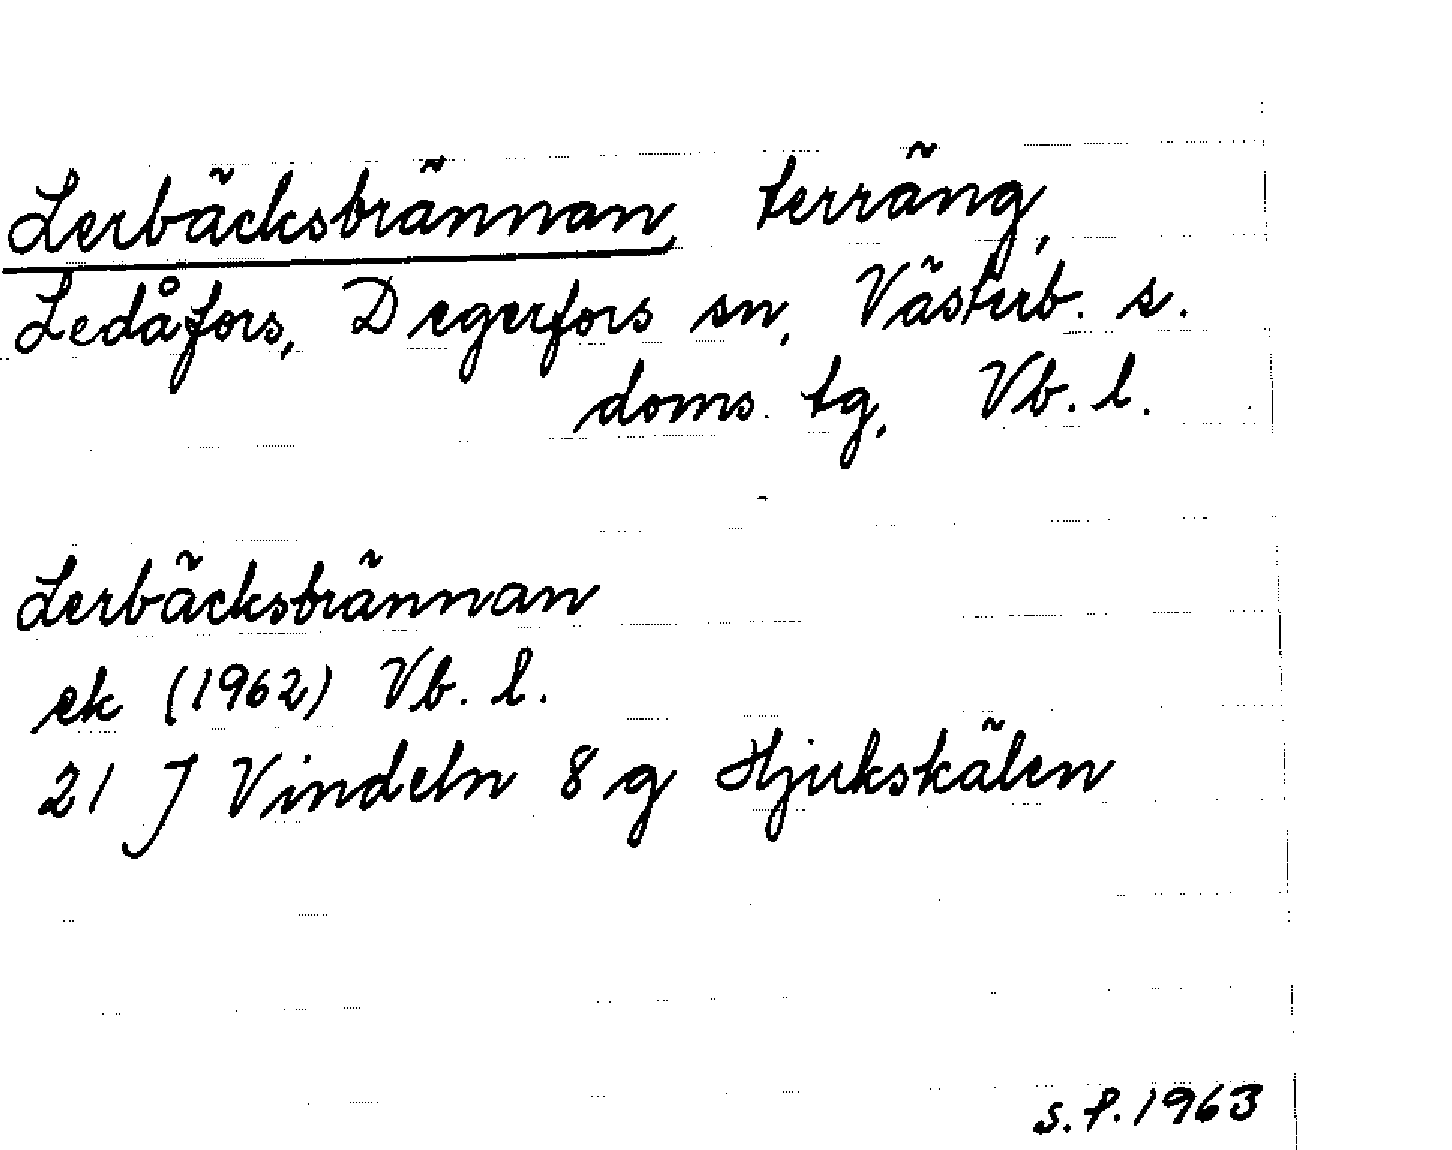 Lerbäcksbrännan, terräng,
Ledåfors, Degerfors sn, Västerb. s.
doms. tg, Vb. l.
Lerbäcksbrännan
ek (1962) Vb. l.
21 J Vindeln 8 g Hjukskälen
s. P. 1963